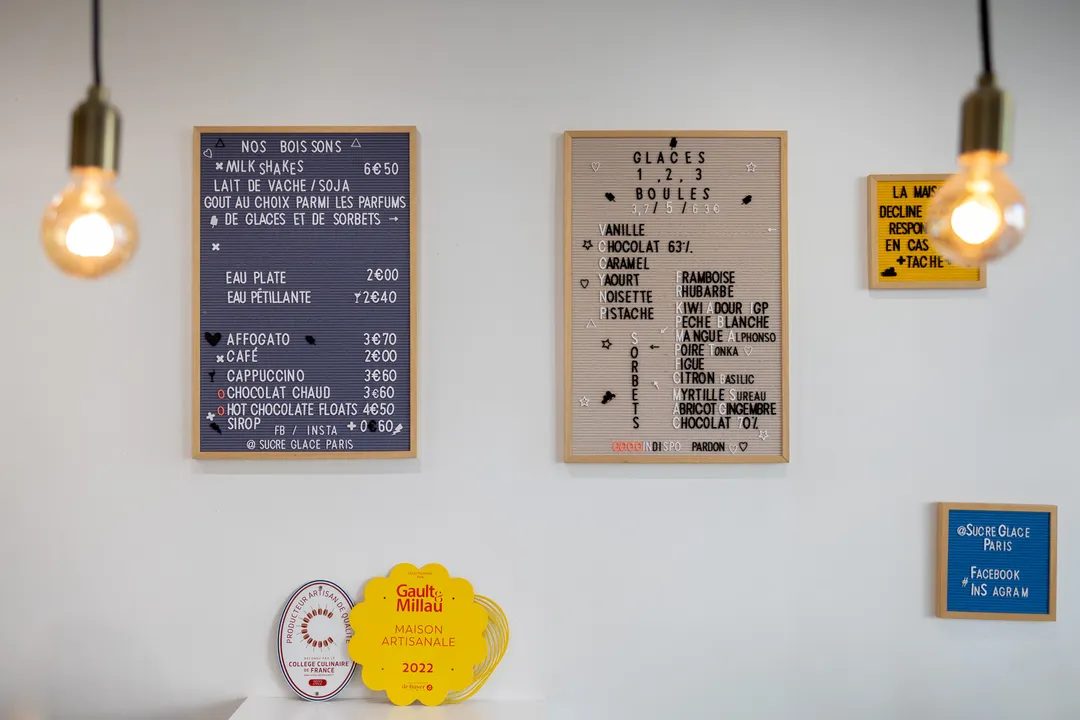 NOS BOISSONS
MILK SHAKES 6€50
LAIT DE VACHE/SOJA
GOUT AU CHOIX PARMI LES PARFUMS
DE GLACES ET DE SORBETS →
EAU PLATE 2€00
EAU PÉTILLANTE 2€40
AFFOGATO 3€70
CAFÉ 2€00
CAPPUCCINO 3€60
CHOCOLAT CHAUD 3€60
HOT CHOCOLATE FLOATS 4€50
SIROP +0€60
FB / INSTA
@ SUCRE GLACE PARIS
GLACES
1 ,2, 3
BOULES
3,7/ 5 / 6 3€
VANILLE
CHOCOLAT 63%
CARAMEL
YAOURT
NOISETTE
PISTACHE
SORBETS
FRAMBOISE
RHUBARBE
KIWI ADOUR IGP
PECHE BLANCHE
MANGUE ALPHONSO
POIRE TONKA
FIGUE
CITRON BASILIC
MYRTILLE SUREAU
ABRICOT GINGEMBRE
CHOCOLAT 70%
INDISPO PARDON
LA
DECLINE
EN CAS
+TACHE+
@SUCRE GLACE
PARIS
FACEBOOK
# INS AGRAM
PRODUCTEUR ARTISAN DE QUALITÉ
COLLEGE CULINAIRE
DE FRANCE
2022
Gault&
Millau
MAISON
ARTISANALE
2022
de Buyer